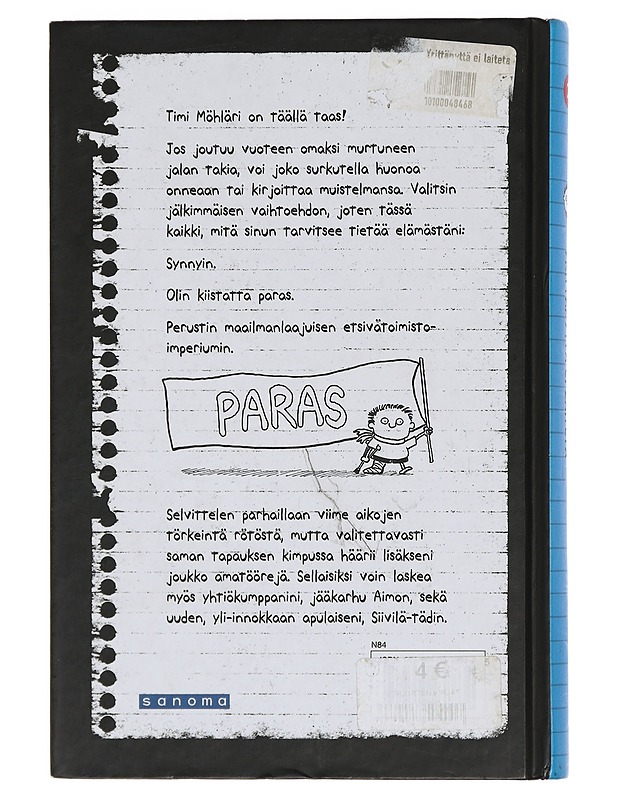 Yrittänyttä ei laiteta
10100048468
Timi Möhläri on täällä taas!
Jos joutuu vuoteen omaksi murtuneen
jalan takia, voi joko surkutella huonoa
onneaan tai kirjoittaa muistelmansa. Valitsin
jälkimmäisen vaihtoehdon, joten tässä
kaikki, mitä sinun tarvitsee tietää elämästäni:
Synnyin.
Olin kiistatta paras.
Perustin maailmanlaajuisen etsivätoimisto-
imperiumin.
PARAS
Selvittelen parhaillaan viime aikojen
törkeintä rötöstä, mutta valitettavasti
saman tapauksen kimpussa häärii lisäkseni
joukko amatöörejä. Sellaisiksi voin laskea
myös yhtiökumppanini, jääkarhu Aimon, sekä
uuden, yli-innokkaan apulaiseni, Siivilä-tädin.
N84
4 €
sanoma